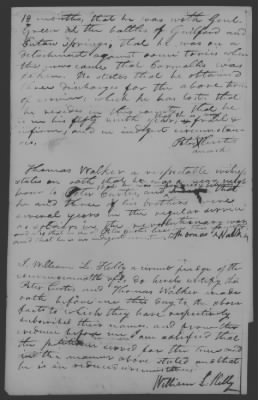 18 months, that he was with Genl.
Green at the battles of Guilford and
Eutaw Springs, that he was on a
detachment against some tories when
the news came that Cornwallis was
taken. He states that he obtained
discharge for the above tour
of service, which he has lost that
he resides in the county, that he
is in his fifty ninth year, is frail &
infirm, and in indigent circumstan
ces.
Peter Curtis
mark
Thomas Walker a respectable
states on oath that he was
Peter Curtis and that
he and three of his brothers were
several years in the regular service
as soldiers in the revolutionary war
and that he is in indigent
Thomas Walker
I William L. Kelly a circuit judge of the
commonwealth &c. do hereby certify that
Peter Curtis and Thomas Walker made
oath before me this day to the above
facts to which they have respectively
subscribed their names, and from the
evidence before me I am satisfied that
the petitioner served for the time and
in the manner above stated and that
he is in reduced circumstances
William L. Kelly